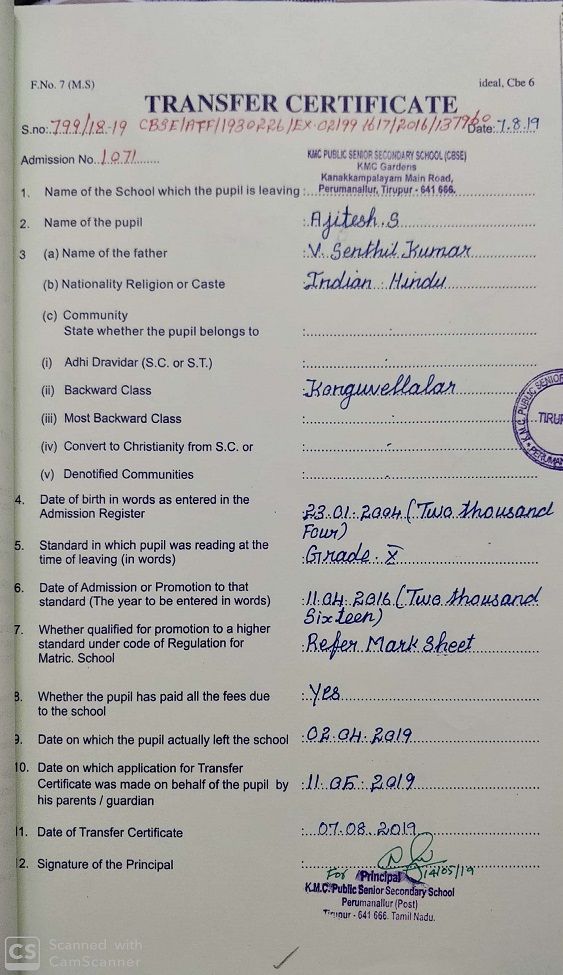 F.No. 7 (M.S) ideal, Cbe 6
TRANSFER CERTIFICATE
S.no: 799/18-19 CBSE/AFF/1930226/EX-02199 1617/2016/137760 Date: 7.8.19
Admission No. 1071
KMC PUBLIC SENIOR SECONDARY SCHOOL (CBSE)
KMC Gardens
Kanakkampalayam Main Road,
1. Name of the School which the pupil is leaving : Perumanallur, Tirupur - 641 666.
2. Name of the pupil : Ajitesh.S
3 (a) Name of the father : V. Senthil Kumar
(b) Nationality Religion or Caste : Indian Hindu
(c) Community
State whether the pupil belongs to : -
(i) Adhi Dravidar (S.C. or S.T.) : -
(ii) Backward Class : Konguvellalar
(iii) Most Backward Class : -
(iv) Convert to Christianity from S.C. or : -
(v) Denotified Communities : -
K.M.C. PUBLIC SENIOR
TIRUP
PERUMAN
4. Date of birth in words as entered in the
Admission Register : 23.01.2004 (Two thousand
Four)
5. Standard in which pupil was reading at the
time of leaving (in words) : Grade. X
6. Date of Admission or Promotion to that
standard (The year to be entered in words) : 11.04.2016 (Two thousand
Sixteen)
7. Whether qualified for promotion to a higher
standard under code of Regulation for : Refer Mark Sheet
Matric. School
8. Whether the pupil has paid all the fees due : Yes
to the school
9. Date on which the pupil actually left the school : 02.04.2019
10. Date on which application for Transfer
Certificate was made on behalf of the pupil by : 11.05.2019
his parents / guardian
11. Date of Transfer Certificate : 07.08.2019
12. Signature of the Principal :
For Principal 14/05/19
K.M.C. Public Senior Secondary School
Perumanallur (Post)
Tirupur - 641 666. Tamil Nadu.
CS Scanned with
CamScanner